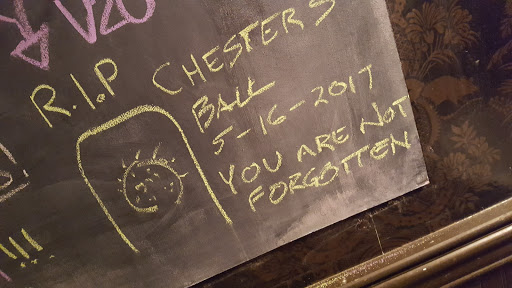 V20
R.I.P CHESTER'S
BALL
5-16-2017
YOU ARE NOT
FORGOTTEN
!
!!!